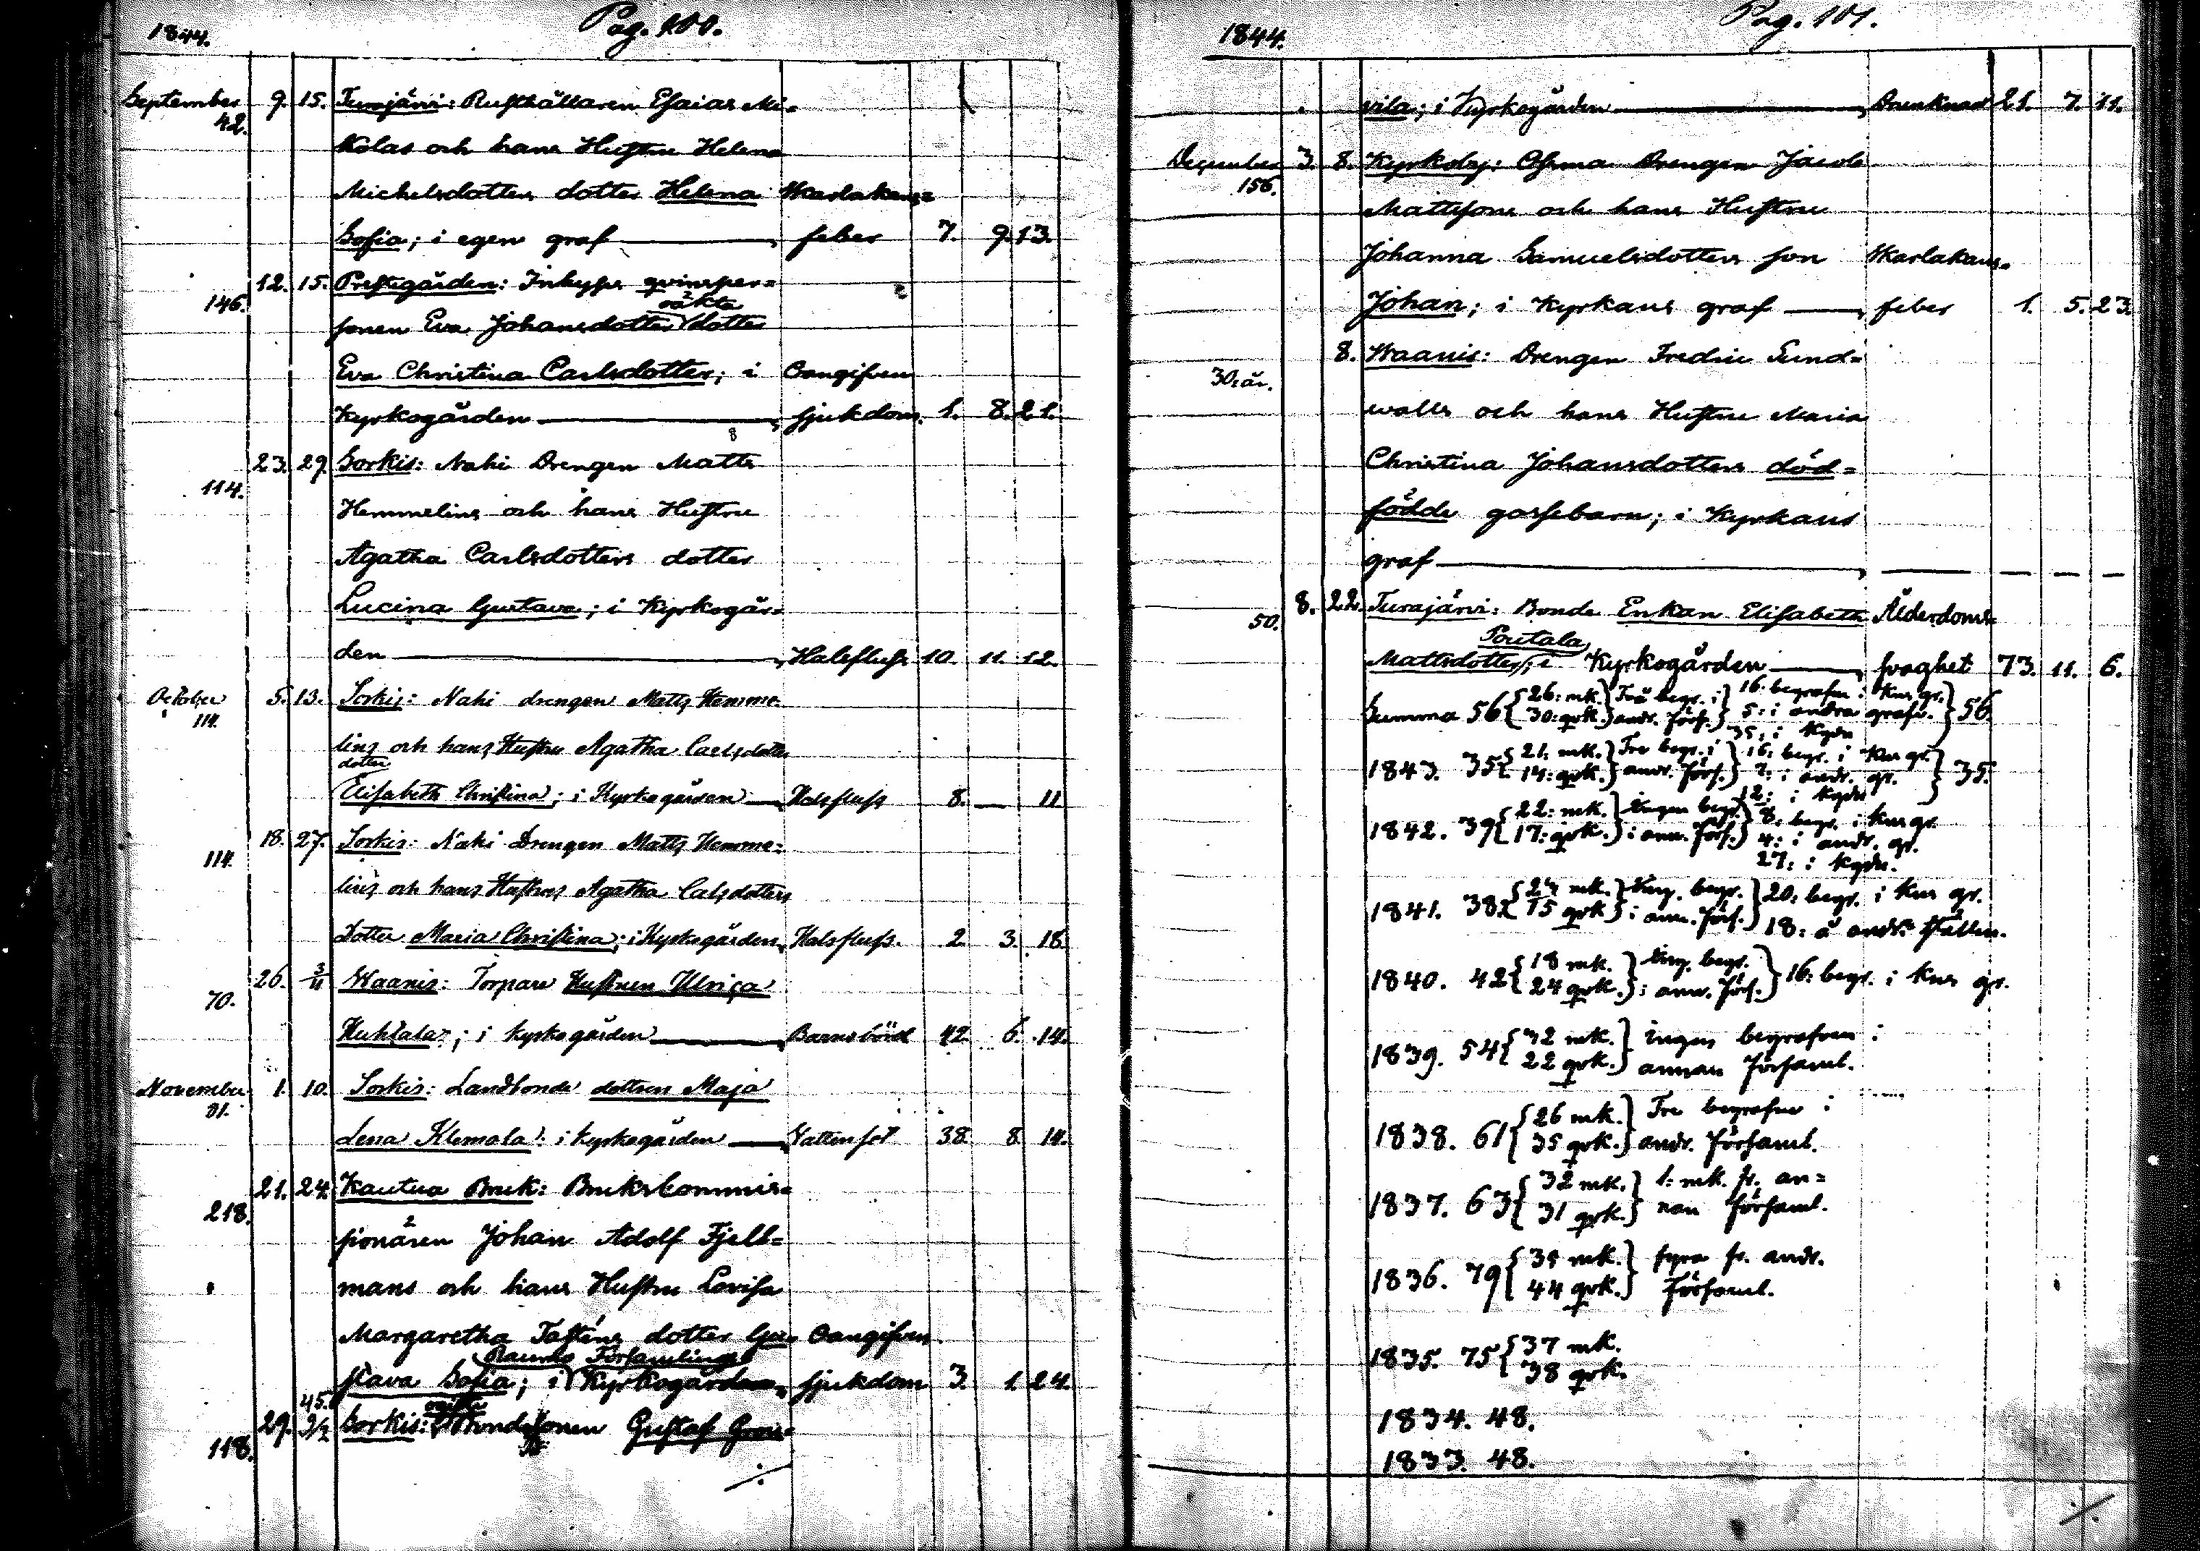 1844.
Pag. 100.
September 9. 15. Turajärvi: Rusthållaren Esaias Mi=
42.
kolas och hans Hustru Helena
Michelsdotters dotter Helena Skarlakans=
Sofia; i egen graf feber 7. 9. 13.
12. 15. Prestegården: Inhyses qvinsper=
146.
oäkta
sonen Eva Johansdotters dotter
Eva Christina Carlsdotter; i Oangifven
Kyrkogården sjukdom. 1. 8. 21.
23. 29. Sorkis: Nahi Drengen Matts
114.
Hemmelins och hans Hustru
Agatha Carlsdotters dotter
Lucina Gustava; i Kyrkogår=
den Halsfluss 10. 11. 12.
October 5. 13. Sorkis: Nahi drengen Matts Hemme
114.
lins och hans Hustru Agatha Carlsdotters
dotter
Elisabeth Christina; i Kyrkogården Halsfluss 8. — 11
18. 27. Sorkis: Nahi Drengen Matts Hemme=
114.
lins och hans Hustrus Agatha Calsdotters
Dotter Maria Christina; i Kyrkogården Halsfluss. 2. 3. 18.
26. 3/11 Waanis: Torpare Hustrun Ulrica
70.
Huhtala; i kyrkogården Barnsbörd 42. 6. 14.
November 1. 10. Sorkis: Landbonde dottren Maja
31.
Lena Klemola: i kyrkogården Vattensot 38. 8. 14.
21. 24. Kautua Bruk: Brukscommis=
218.
sionären Johan Adolf Fjell=
mans och hans Hustru Lovisa
Margaretha Tasténs dotter Gu= Oangifven
Raumo Församlings
stava Sofia; i Kyrkogården sjukdom 3. 1. 24.
45.
29. 9/12 Sorkis: Bondesonen Gustaf Grön=
118.
1844.
Pag. 101.
vila; i Kyrkogården Drunknad 21. 7. 11.
December 3. 8. Kyrkoby: Ohrma Drengen Jacob
156.
Mattssons och hans Hustru
Johanna Samuelsdotters son Skarlakans=
Johan; i Kyrkans graf feber 1. 5. 23.
8. Waanis: Drengen Fredric Sund=
30. är.
walls och hans Hustru Maria
Christina Johansdotters död=
födde gossebarn; i Kyrkans
graf — — —
8. 22. Turajärvi: Bonde Enkan Elisabeth Ålderdoms=
50.
Poutala
Mattsdotter; i Kyrkogården svaghet 73. 11. 6.
Summa 56 { 26: mk. 30: qvk. } Två begr. i andr. förs. } 16. begrafn. i kur gr. 5: i andra grafv. 35. i kgdn } 56.
1843. 35 { 21. mk. 14: qvk. } Tre begr. i andr. förs. } 16. begr. i kur gr. 7: i andr. gr. 12: i kgdn } 35.
1842. 39 { 22: mk. 17: qvk. } Ingen begr. i ann. förs. } 8. begr. i kur gr. 4: i andr. gr. 27: i kgdn.
1841. 38 { 23 mk. 15 qvk. } Ing. begr. i ann. förs. } 20: begr. i kur gr. 18: å andr. ställen.
1840. 42 { 18 mk. 24 qvk. } Ing. begr. i ann. förs. } 16: begr. i kur gr.
1839. 54 { 32 mk. 22 qvk. } ingen begrafven i annan församl.
1838. 61 { 26 mk. 35 qvk. } Tre begrafne i andr. församl.
1837. 63 { 32 mk. 31 qvk. } 1: mk. fr. an= nan församl.
1836. 79 { 35 mk. 44 qvk. } fyra fr. andr. församl.
1835. 75 { 37 mk. 38 qvk.
1834. 48.
1833. 48.